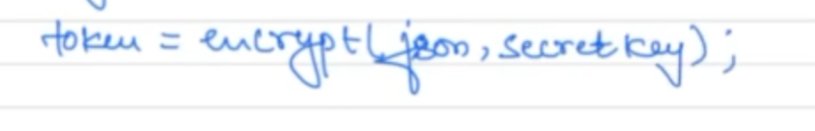 token = encrypt(json, secretkey);